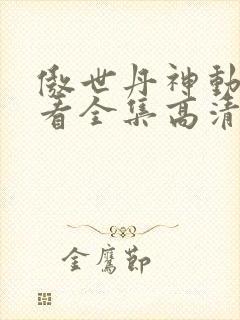 傲世丹神動
看全集高清
金鷹節